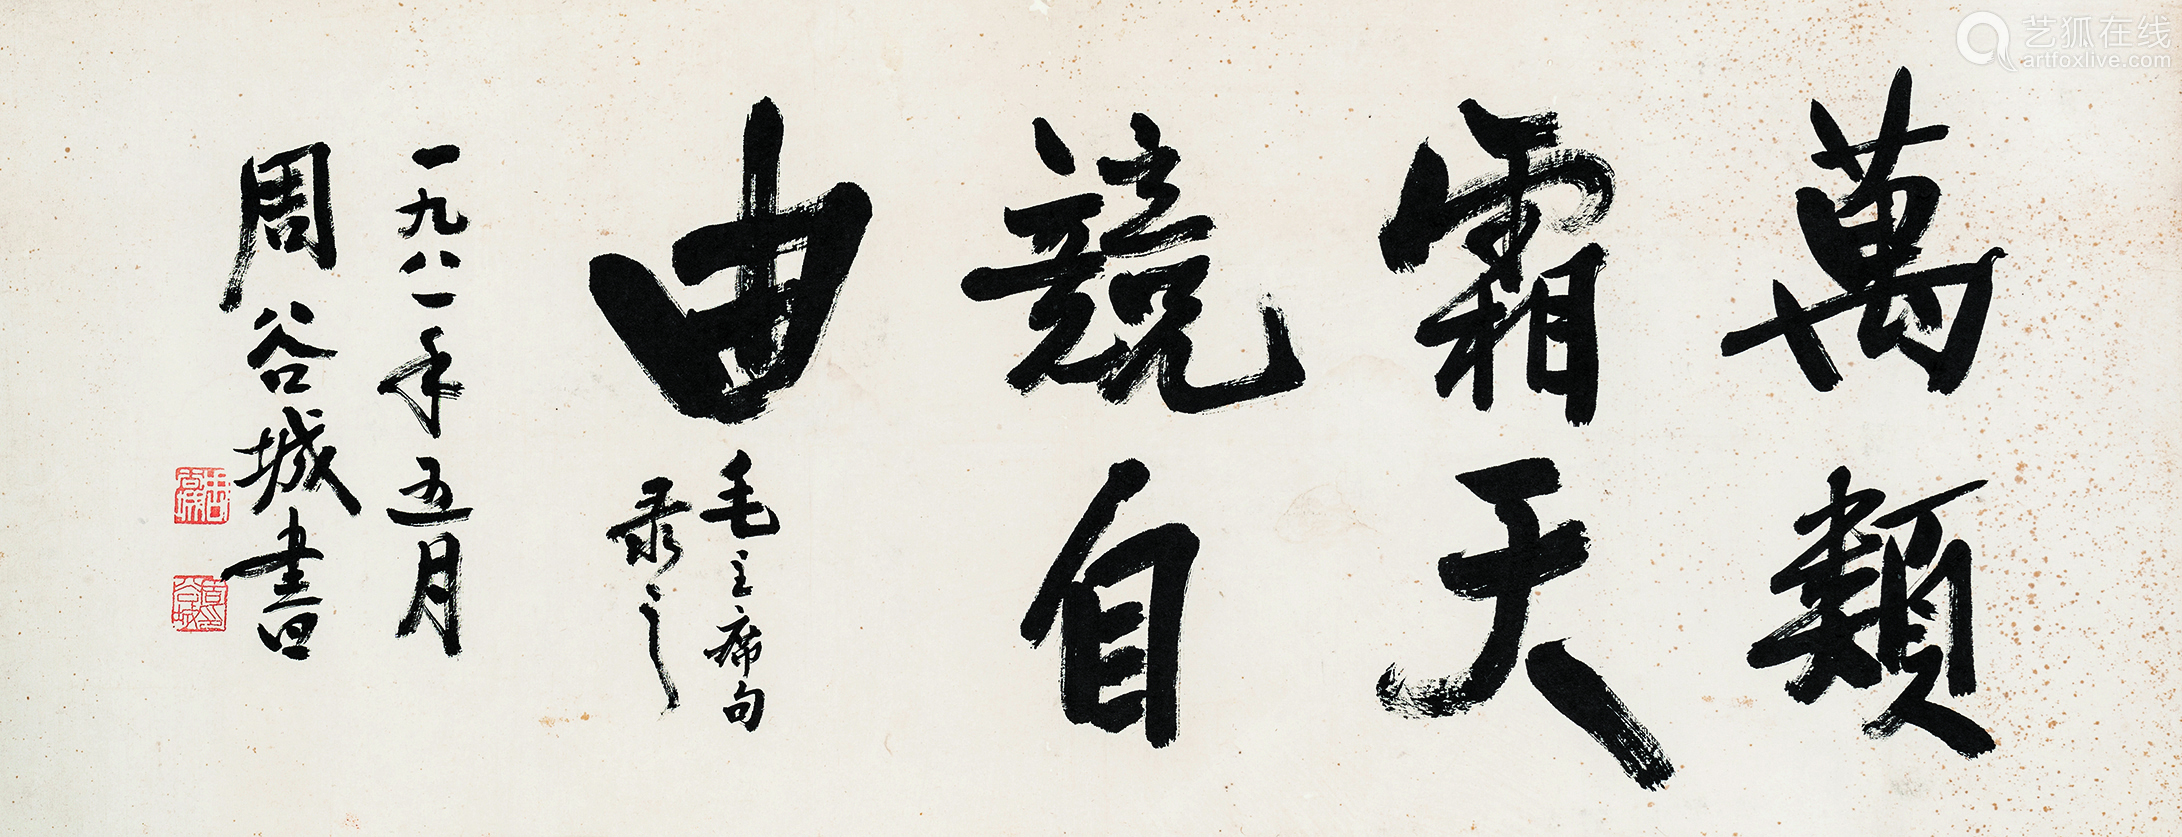 萬類
霜天
競自
由
毛主席句
录之
一九八一年五月
周谷城书
周谷城
艺狐在线
artfoxlive.com